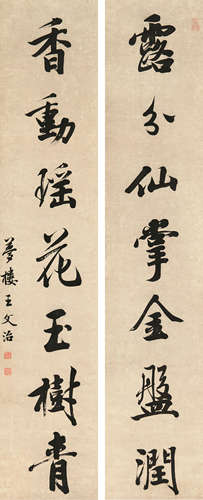 露分仙掌金盤潤
香動瑤花玉樹青
夢樓王文治